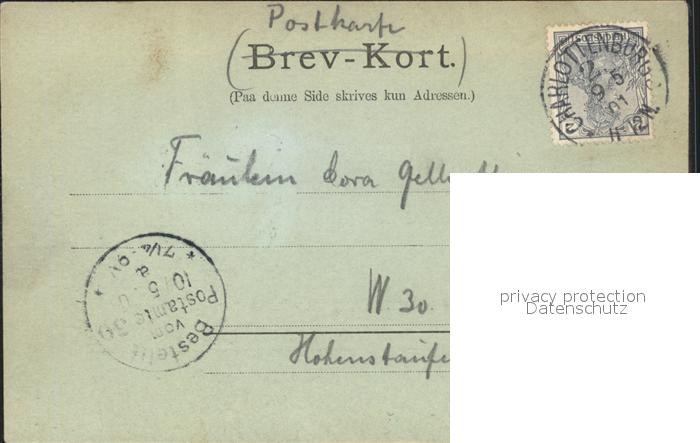 Postkarte
(Brev-Kort.)
(Paa denne Side skrives kun Adressen.)
CHARLOTTENBURG
9 5
01
11-12 N.
Fräulein Dora
W 30.
Bestellt
vom
Postamte 30
10/5
7¼-9V
privacy protection
Datenschutz